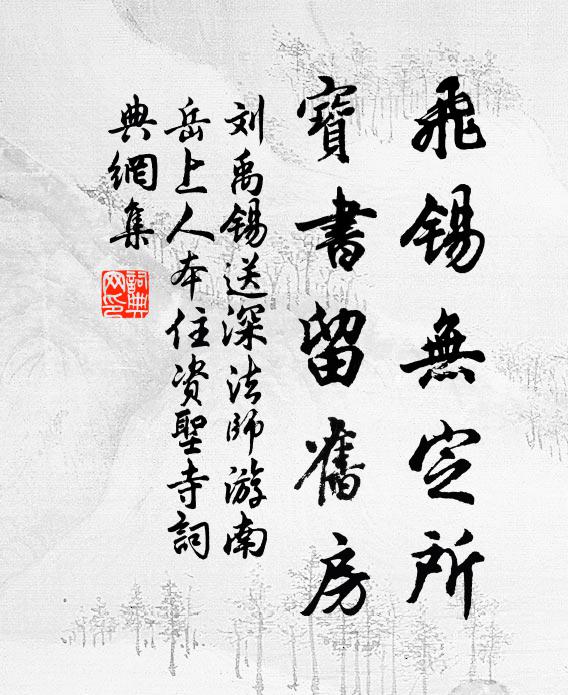 飛錫無定所
寶書留舊房
刘禹锡送深法师游南
岳上人本住资聖寺詞
典網集
詞典网印